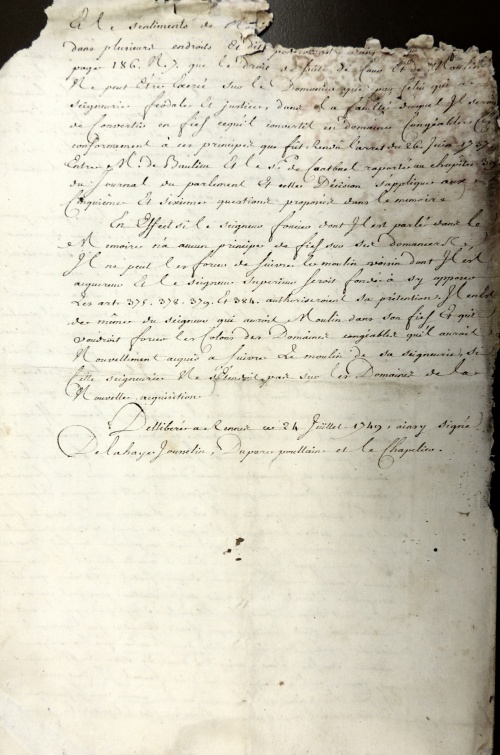 Et le sentiments de
dans plusieurs endroits Et dit
page 186. N. 7. que le droit de suite de four Et de Moulin
Ne peut Etre Exercé sur le Domaine que par Celuy qui
Seigneurie feodale Et justice, dans la faculté duquel Il seroit
de Convertir en fief cequ'il convertit en domaine Congéable, C'est
conformement à ces principes que fut Rendu l'arrest du 26. juin 1737
Entre M. de Et le Sr. de raporté au chapitre
du journal du parlement Et cette Décision s'applique aux
Cinquième Et sixieme questions proposés dans le memoire
En Effect si le seigneur foncier dont Il est parlé dans le
Memoire n'a aucun principe de fief sur ses domaniers,
Il ne peut les forcer de suivre le moulin voisin dont Il est
acquereur Et le seigneur superieur seroit fondé à s'y opposer
Les art. 375. 378. 379. et 384. authoriseroient sa prétention. Il en est
de même du seigneur qui auroit Moulin dans son fief Et qui
voudroit forcer les Colons des Domaines congéables qu'il auroit
Nouvellement acquis à suivre Le moulin de sa seigneurie, si
Cette seigneurie Ne s'étendoit pas sur les Domaines de la
Nouvelle acquisition
Délliberé a Rennes ce 24 Juillet 1749, ainsy signé
Delahaye Jousselin, Duparc poullain et le Chapelier.